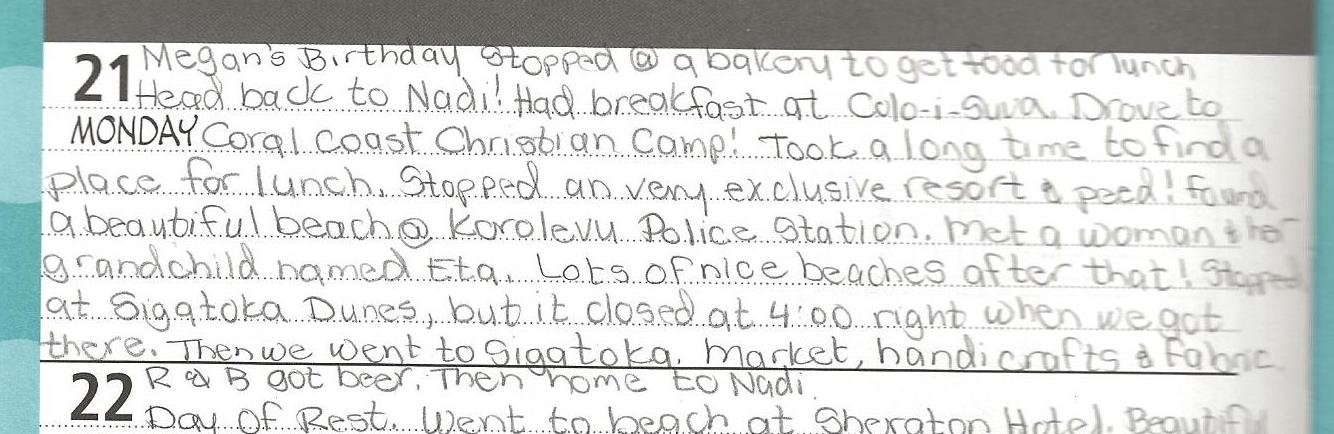 21 Megan's Birthday Stopped @ a bakery to get food for lunch
Head back to Nadi! Had breakfast at Colo-i-Suva. Drove to
MONDAY Coral Coast Christian Camp! Took a long time to find a
place for lunch. Stopped an very exclusive resort & peed! Found
a beautiful beach @ Korolevu Police Station. Met a woman & her
grandchild named Eta. Lots of nice beaches after that! Stopped
at Sigatoka Dunes, but it closed at 4:00 right when we got
there. Then we went to Sigatoka. Market, handicrafts & Fabric.
R & B got beer. Then home to Nadi.
22 Day of Rest. Went to beach at Sheraton Hotel. Beautiful